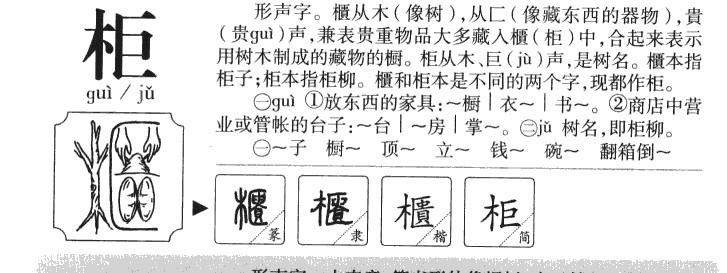 柜
guì / jǔ
形声字。櫃从木(像树),从匚(像藏东西的器物),貴
(贵guì)声,兼表贵重物品大多藏入櫃(柜)中,合起来表示
用树木制成的藏物的橱。柜从木、巨(jù)声,是树名。櫃本指
柜子;柜本指柜柳。櫃和柜本是不同的两个字,现都作柜。
㊀guì ①放东西的家具:~橱|衣~|书~。②商店中营
业或管帐的台子:~台|~房|掌~。㊁jǔ 树名,即柜柳。
㊀~子 橱~ 顶~ 立~ 钱~ 碗~ 翻箱倒~
櫃 篆
櫃 隶
櫃 楷
柜 简